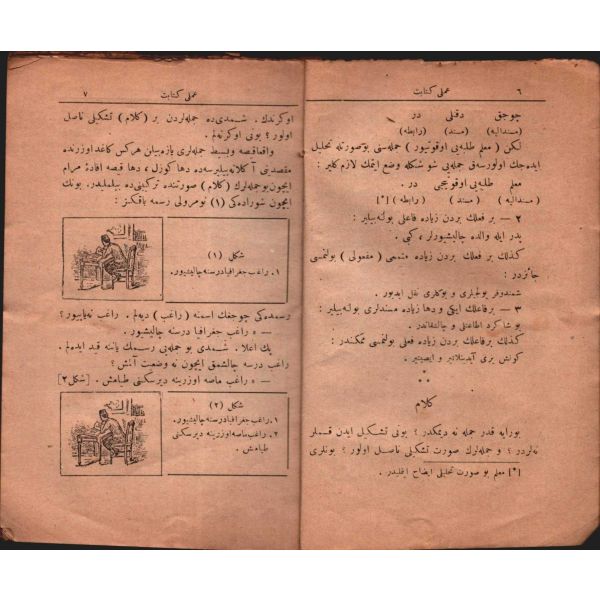 ٦ عملی کتابت
چوجق دقتلی در
(مسندالیه) (مسند) (رابطه)
لکن ( معلم طلبه‌یی اوقوتیور ) جمله‌سنی بوصورتله تحلیل
ایده‌جك اولورسه‌ق جمله‌یی شو شکله وضع ایتمك لازم کلیر :
معلم طلبه‌یی اوقوتیجی در .
( مسندالیه ) ( مسند ) ( رابطه ) [*]
٢ — بر فعلك بردن زیاده فاعلی بولنه‌بیلیر :
پدر ایله والده چالیشیورلر ، کبی .
کذلك بر فعلك بردن زیاده متممی (مفعولی) بولنمسی
جائزدر :
شمندوفر یولجیلری و یوکلری نقل ایدیور .
٣ — برفاعلك ایکی و دها زیاده مسندلری بولنه‌بیلیر :
بو شاکرد اطاعتلی و چالیشقاندر .
کذلك برفاعلك بردن زیاده فعلی بولنمسی ممکندر :
کونش یری آیدینلاتیر و ایصیتیر .
کلام
بورایه قدر جمله نه دیمکدر ؟ بونی تشکیل ایدن قسملر
نه‌لردر ؟ و جمله‌لرك صورت تشکیلی ناصل اولور ؟ بونلری
[*] معلم بو صورت تحلیلی ایضاح ایتملیدر .
عملی کتابت ٧
اوکرندك . شمدی‌ده جمله‌لردن بر ( کلام ) تشکیلی ناصل
اولور ؟ بونی اوکرنه‌لم .
واقعا قیصه وبسیط جمله‌لری یازه‌بیلن هرکس کاغد اوزرنده
مقصدینی آکلاته‌بیلیرسه‌ده دها کوزل ، دها قیصه افادهٔ مرام
ایچون بوجمله‌لرك (کلام ) صورتنده ترکیبنی‌ده بیلملیدر. بونك
ایچون شوراده‌کی (١) نومرولی رسمه باقکز :
شکل (١)
١ . راغب جغرافیا درسنه چالیشیور.
رسمده‌کی چوجغك اسمنه (راغب ) دیه‌لم . راغب نه‌یاپیور؟
— ه راغب جغرافیا درسنه چالیشیور.
پك اعلا . شمدی بو جمله‌یی رسمك یاننه قید ایده‌لم .
راغب درسه چالیشمق ایچون نه وضعیت آلمش ؟
— ه راغب ماصه اوزرینه دیرسکنی طیامش . [شکل٢]
شکل (٢)
١ . راغب جغرافیا درسنه چالیشیور.
٢ . راغب ماصه اوزرینه دیرسکنی
طیامش .